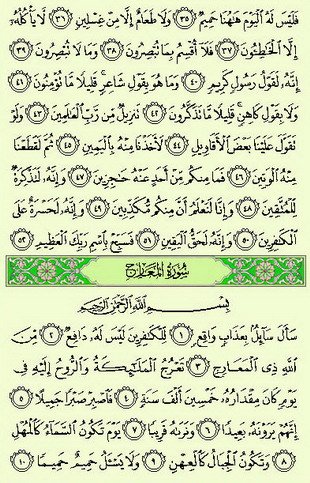 فَلَيْسَ لَهُ الْيَوْمَ هَٰهُنَا حَمِيمٌ ٣٥ وَلَا طَعَامٌ إِلَّا مِنْ غِسْلِينٍ ٣٦ لَّا يَأْكُلُهُ
إِلَّا الْخَاطِئُونَ ٣٧ فَلَا أُقْسِمُ بِمَا تُبْصِرُونَ ٣٨ وَمَا لَا تُبْصِرُونَ ٣٩
إِنَّهُ لَقَوْلُ رَسُولٍ كَرِيمٍ ٤٠ وَمَا هُوَ بِقَوْلِ شَاعِرٍ قَلِيلًا مَّا تُؤْمِنُونَ ٤١
وَلَا بِقَوْلِ كَاهِنٍ قَلِيلًا مَّا تَذَكَّرُونَ ٤٢ تَنزِيلٌ مِّن رَّبِّ الْعَالَمِينَ ٤٣ وَلَوْ
تَقَوَّلَ عَلَيْنَا بَعْضَ الْأَقَاوِيلِ ٤٤ لَأَخَذْنَا مِنْهُ بِالْيَمِينِ ٤٥ ثُمَّ لَقَطَعْنَا
مِنْهُ الْوَتِينَ ٤٦ فَمَا مِنكُم مِّنْ أَحَدٍ عَنْهُ حَاجِزِينَ ٤٧ وَإِنَّهُ لَتَذْكِرَةٌ
لِّلْمُتَّقِينَ ٤٨ وَإِنَّا لَنَعْلَمُ أَنَّ مِنكُم مُّكَذِّبِينَ ٤٩ وَإِنَّهُ لَحَسْرَةٌ عَلَى
الْكَافِرِينَ ٥٠ وَإِنَّهُ لَحَقُّ الْيَقِينِ ٥١ فَسَبِّحْ بِاسْمِ رَبِّكَ الْعَظِيمِ ٥٢
سُورَةُ الْمَعَارِجِ
بِسْمِ اللَّهِ الرَّحْمَٰنِ الرَّحِيمِ
سَأَلَ سَائِلٌ بِعَذَابٍ وَاقِعٍ ١ لِّلْكَافِرِينَ لَيْسَ لَهُ دَافِعٌ ٢ مِّنَ
اللَّهِ ذِي الْمَعَارِجِ ٣ تَعْرُجُ الْمَلَائِكَةُ وَالرُّوحُ إِلَيْهِ فِي
يَوْمٍ كَانَ مِقْدَارُهُ خَمْسِينَ أَلْفَ سَنَةٍ ٤ فَاصْبِرْ صَبْرًا جَمِيلًا ٥
إِنَّهُمْ يَرَوْنَهُ بَعِيدًا ٦ وَنَرَاهُ قَرِيبًا ٧ يَوْمَ تَكُونُ السَّمَاءُ كَالْمُهْلِ
٨ وَتَكُونُ الْجِبَالُ كَالْعِهْنِ ٩ وَلَا يَسْأَلُ حَمِيمٌ حَمِيمًا ١٠